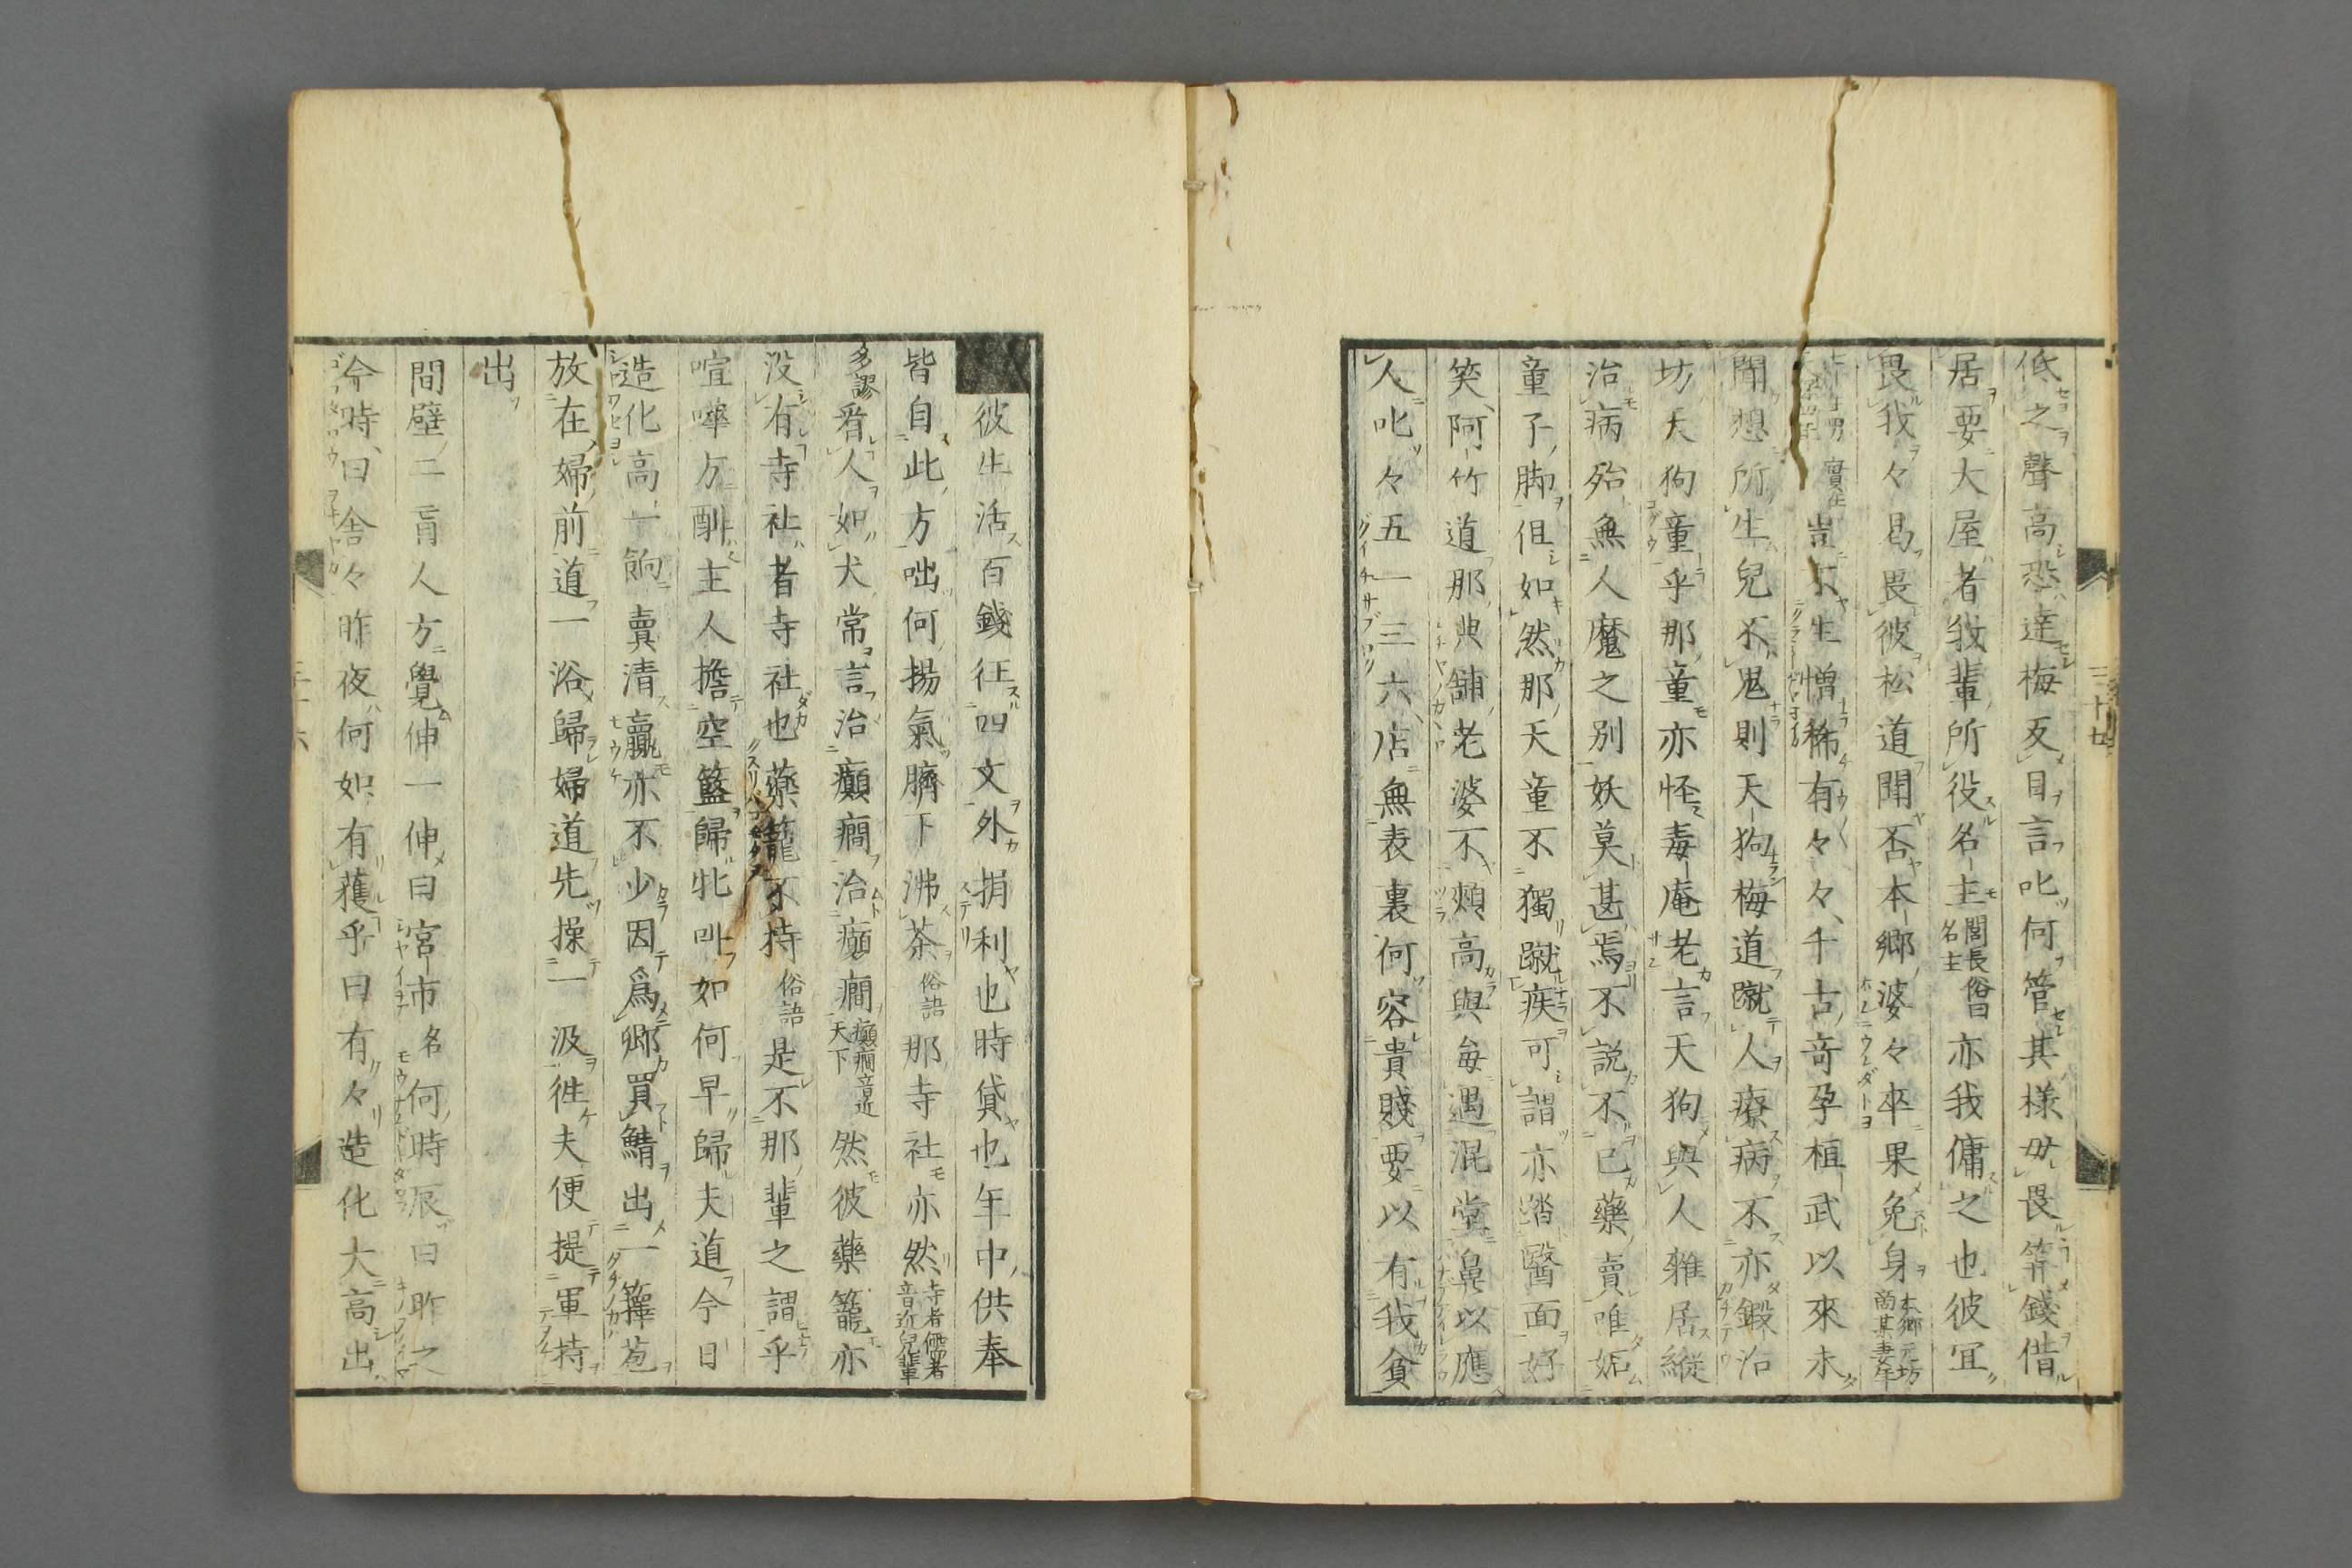 低之聲高恐達梅反目言叱何管其樣毋畏箝錢借
居要大屋者我輩所役名主閭長俗曰名主亦我傭之也彼冝
畏我々曷畏彼松道聞否本郷婆々卒果免身本郷元坊啇某妻年
豈不生憎稀有々々千古竒孕植武以來未
聞想所生兒不鬼則天狗梅道蹴人療病不亦鍛冶
坊天狗童乎那童亦怪毒庵老言天狗與人雜居縱
治病殆無人魔之別妖莫甚焉不説不已藥賣唯妬
童子脚但如然那天童不獨蹴疾可謂亦踏醫面好
笑阿竹道那典舗老婆不頰高與每遇混堂鼻以應
人叱々五一三六店無表裏何容貴賤要以有我貧
彼生活百錢征四文外捐利也時貸也年中供奉
皆自此方咄何揚氣臍下沸茶俗語那寺社亦然寺者儒者音近兒輩
多謬看人如犬常言治癲癇治癲癇癲癇音近天下然彼藥籠亦
没有寺社者寺社也藥籠不持俗語是不那輩之謂乎
喧嘩方酣主人擔空籃歸牝叫如何早歸夫道今日
造化高一餉賣清贏亦不少因爲郷買鯖出一籜苞
放在婦前道一浴歸婦道先操一汲徃夫便提軍持
出
間壁二盲人方覺伸一伸曰宮市名何時辰曰昨之
今時曰舍々昨夜何如有獲乎曰有々造化大高出